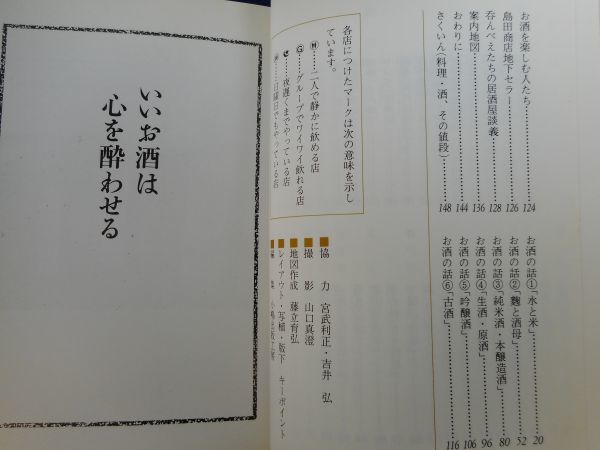 お酒を楽しむ人たち 124
島田商店地下セラー 126
呑んべえたちの居酒屋談義 128
案内地図 136
おわりに 144
さくいん(料理・酒、その値段) 148
お酒の話①「水と米」 20
お酒の話②「麹と酒母」 52
お酒の話③「純米酒・本醸造酒」 80
お酒の話④「生酒・原酒」 96
お酒の話⑤「吟醸酒」 106
お酒の話⑥「古酒」 116
各店につけたマークは次の意味を示し
ています。
二人で静かに飲める店
Ⓖ グループでワイワイ飲れる店
夜遅くまでやっている店
日曜日でもやっている店
■協 力 宮武利正・吉井 弘
■撮 影 山口真澄
■地図作成 藤立育弘
■レイアウト・写植・版下 キーポイント
いいお酒は
心を酔わせる